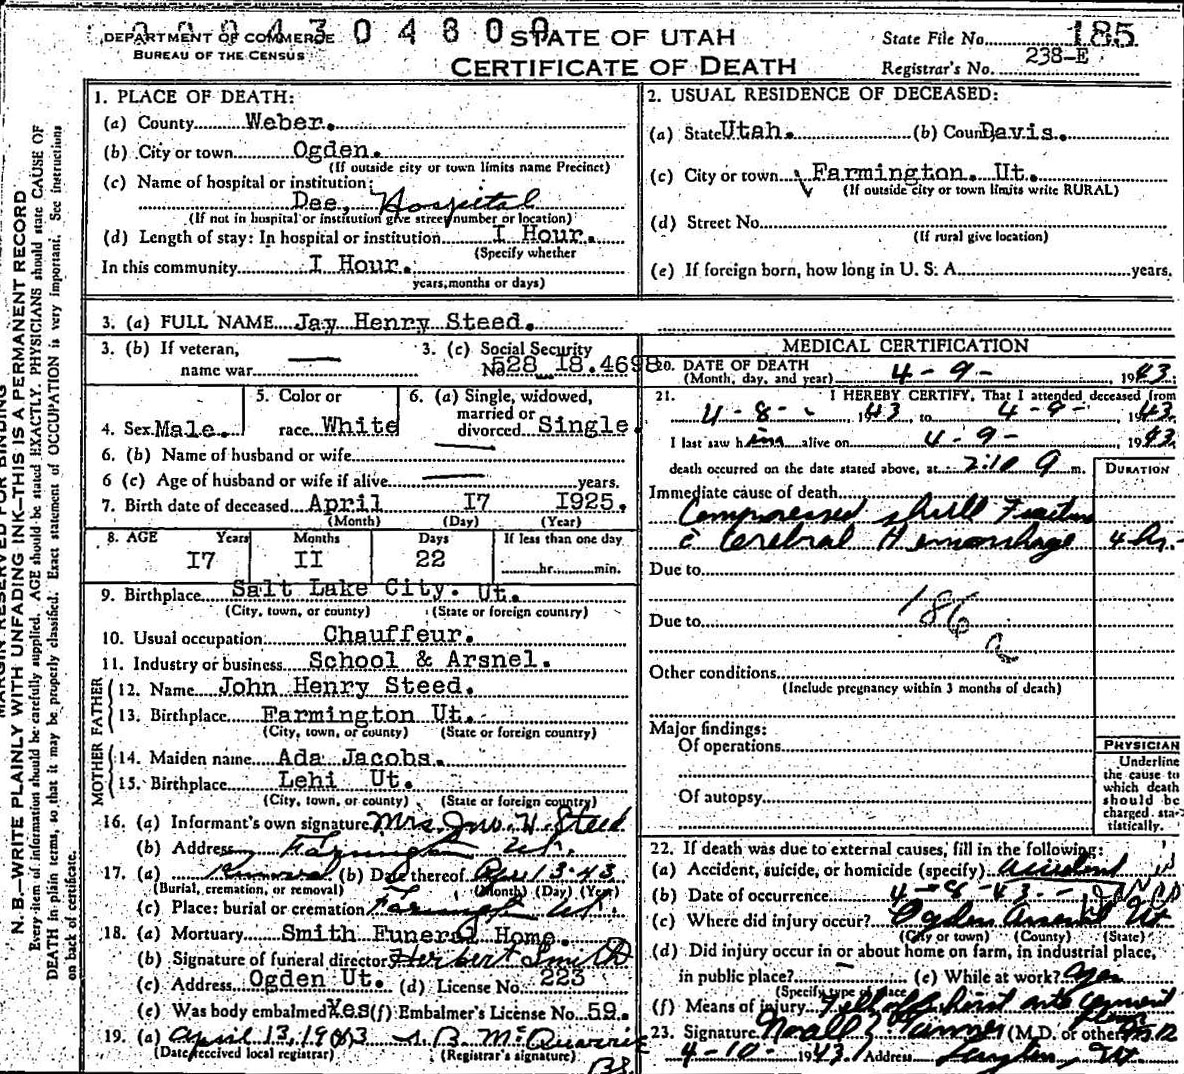 0 0 0 4 3 0 4 8 0 0
DEPARTMENT OF COMMERCE
BUREAU OF THE CENSUS
STATE OF UTAH
CERTIFICATE OF DEATH
State File No. 185
Registrar's No. 238-E
MARGIN RESERVED FOR BINDING
N. B.—WRITE PLAINLY WITH UNFADING INK—THIS IS A PERMANENT RECORD
Every item of information should be carefully supplied. AGE should be stated EXACTLY. PHYSICIANS should state CAUSE OF
DEATH in plain terms, so that it may be properly classified. Exact statement of OCCUPATION is very important. See instructions
on back of certificate.
1. PLACE OF DEATH:
(a) County Weber.
(b) City or town Ogden.
(If outside city or town limits name Precinct)
(c) Name of hospital or institution:
Dee, Hospital
(If not in hospital or institution give street number or location)
(d) Length of stay: In hospital or institution I Hour.
(Specify whether
In this community I Hour.
years, months or days)
2. USUAL RESIDENCE OF DECEASED:
(a) State Utah. (b) Coun Davis.
(c) City or town Farmington. Ut.
(If outside city or town limits write RURAL)
(d) Street No.
(If rural give location)
(e) If foreign born, how long in U. S. A. years.
3. (a) FULL NAME Jay Henry Steed.
3. (b) If veteran,
name war
3. (c) Social Security
No. 528 18.4698
4. Sex Male.
5. Color or
race White
6. (a) Single, widowed,
married or
divorced Single.
6. (b) Name of husband or wife
6 (c) Age of husband or wife if alive years.
7. Birth date of deceased April I7 I925.
(Month) (Day) (Year)
8. AGE Years Months Days If less than one day
I7 II 22 hr. min.
9. Birthplace Salt Lake City. Ut.
(City, town, or county) (State or foreign country)
10. Usual occupation Chauffeur.
11. Industry or business School & Arsnel.
FATHER
12. Name John Henry Steed.
13. Birthplace Farmington Ut.
(City, town, or county) (State or foreign country)
MOTHER
14. Maiden name Ada Jacobs.
15. Birthplace Lehi Ut.
(City, town, or county) (State or foreign country)
16. (a) Informant's own signature Mrs. Jno. H. Steed
(b) Address Farmington Ut.
17. (a) Removal (b) Date thereof 13-43
(Burial, cremation, or removal) (Month) (Day) (Year)
(c) Place: burial or cremation Ut.
18. (a) Mortuary Smith Funeral Home.
(b) Signature of funeral director Herbert Smith
(c) Address Ogden Ut. (d) License No. 223
(e) Was body embalmed Yes (f) Embalmer's License No. 59.
19. (a) April 13, 1943
(Date received local registrar) (Registrar's signature)
MEDICAL CERTIFICATION
20. DATE OF DEATH
(Month, day, and year) 4-9- , 1943.
21. I HEREBY CERTIFY, That I attended deceased from
4-8- 1943 to 4-9- 1943
I last saw him alive on 4-9- 1943
death occurred on the date stated above, at 2:10 a m.
DURATION
Immediate cause of death
Compressed skull Fracture
c̄ Cerebral Hemorrhage 4 hr.
Due to
186
a
Due to
Other conditions
(Include pregnancy within 3 months of death)
Major findings:
Of operations
Of autopsy
PHYSICIAN
Underline
the cause to
which death
should be
charged sta-
tistically.
22. If death was due to external causes, fill in the following:
(a) Accident, suicide, or homicide (specify) accident
(b) Date of occurrence 4-8-43
(c) Where did injury occur? Ogden Arsenal Ut
(City or town) (County) (State)
(d) Did injury occur in or about home on farm, in industrial place,
in public place? (e) While at work? yes
(Specify type of place)
(f) Means of injury Fell hoist onto cement
23. Signature Noall Z Tanner (M. D. or other)
4-10- 1943. Address Layton, Ut.